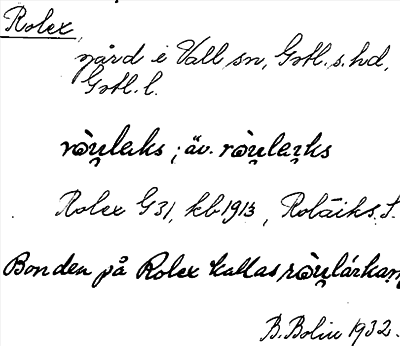 Rolex,
gård i Vall sn, Gotl. s. hd,
Gotl. l.
ròu̯leks ; äv. ròu̯lei̯ks
Rolex G 31, kb 1913, Rolaiks. S.
Bonden på Rolex kallas
B. Bolin 1932.